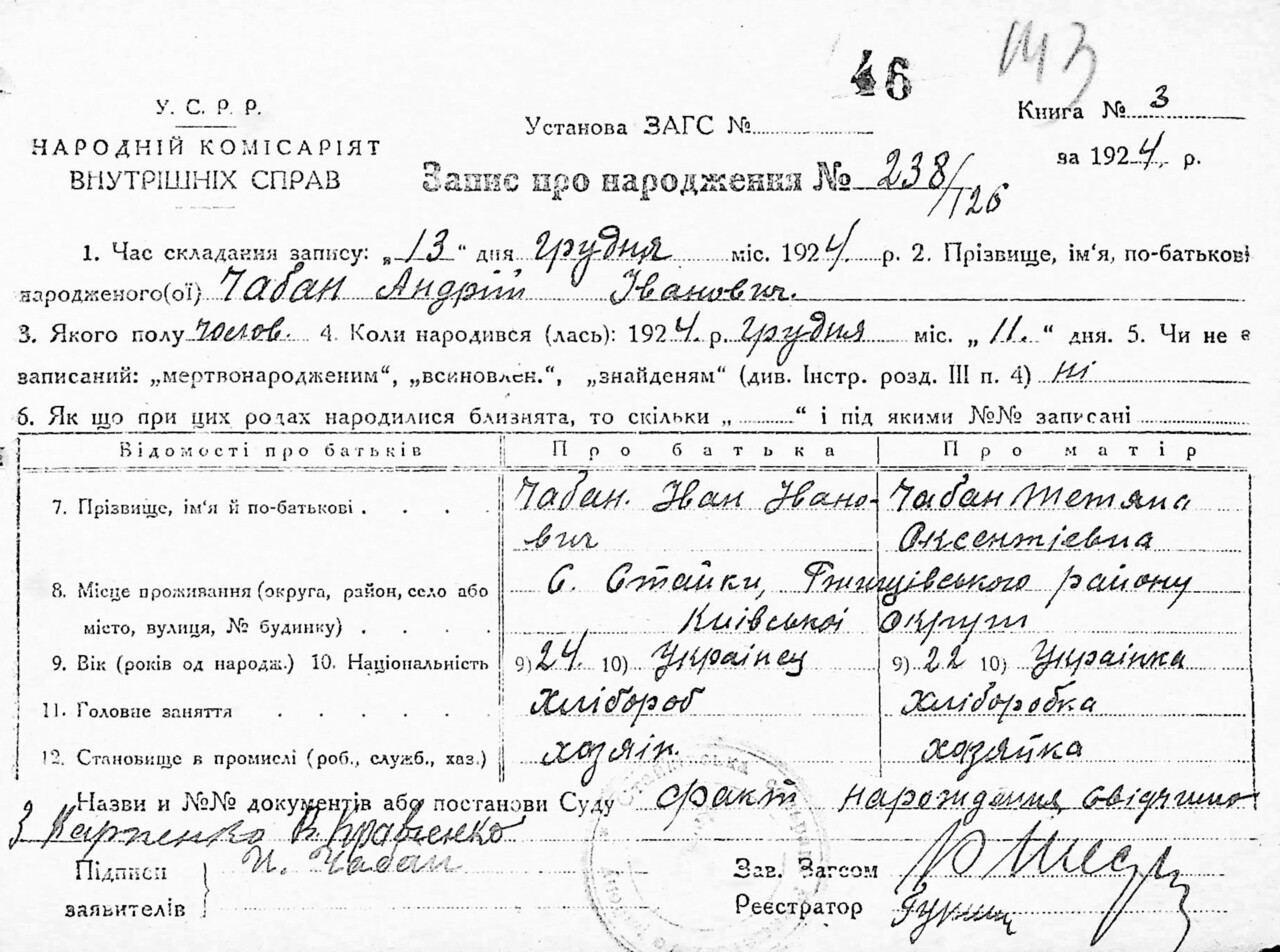 46
143
У. С. Р. Р.
НАРОДНІЙ КОМІСАРІЯТ
ВНУТРІШНІХ СПРАВ
Установа ЗАГС №
Книга № 3
за 1924 р.
Запис про народження № 238/126
1. Час складання запису: „13" дня грудня міс. 1924. р. 2. Прізвище, ім'я, по-батькові
народженого(ої) Чабан Андрій Іванович.
3. Якого полу чолов. 4. Коли народився (лась): 1924. р. грудня міс. „11." дня. 5. Чи не є
записаний: „мертвонародженим", „всиновлен.", „знайденям" (див. Інстр. розд. III п. 4) ні
6. Як що при цих родах народилися близнята, то скільки „ " і під якими №№ записані
Відомості про батьків Про батька Про матір
7. Прізвище, ім'я й по-батькові . . . . Чабан. Іван Івано- Чабан Тетяна
вич Оксентієвна
8. Місце проживання (округа, район, село або С. Стайки, Ржищівського району
місто, вулиця, № будинку) . . . . Київської Округи
9. Вік (років од народж.) 10. Національність 9) 24. 10) Українец 9) 22 10) Українка
11. Головне заняття . . . . . . Хлібороб Хліборобка
12. Становище в промислі (роб., служб., хаз.) хозяін. хозяйка
Назви и №№ документів або постанови Суду факт нарождения свідчимо
Карпенко В Кравченко
Підписи И. Чабан
заявителів
Зав. Загсом
Реєстратор